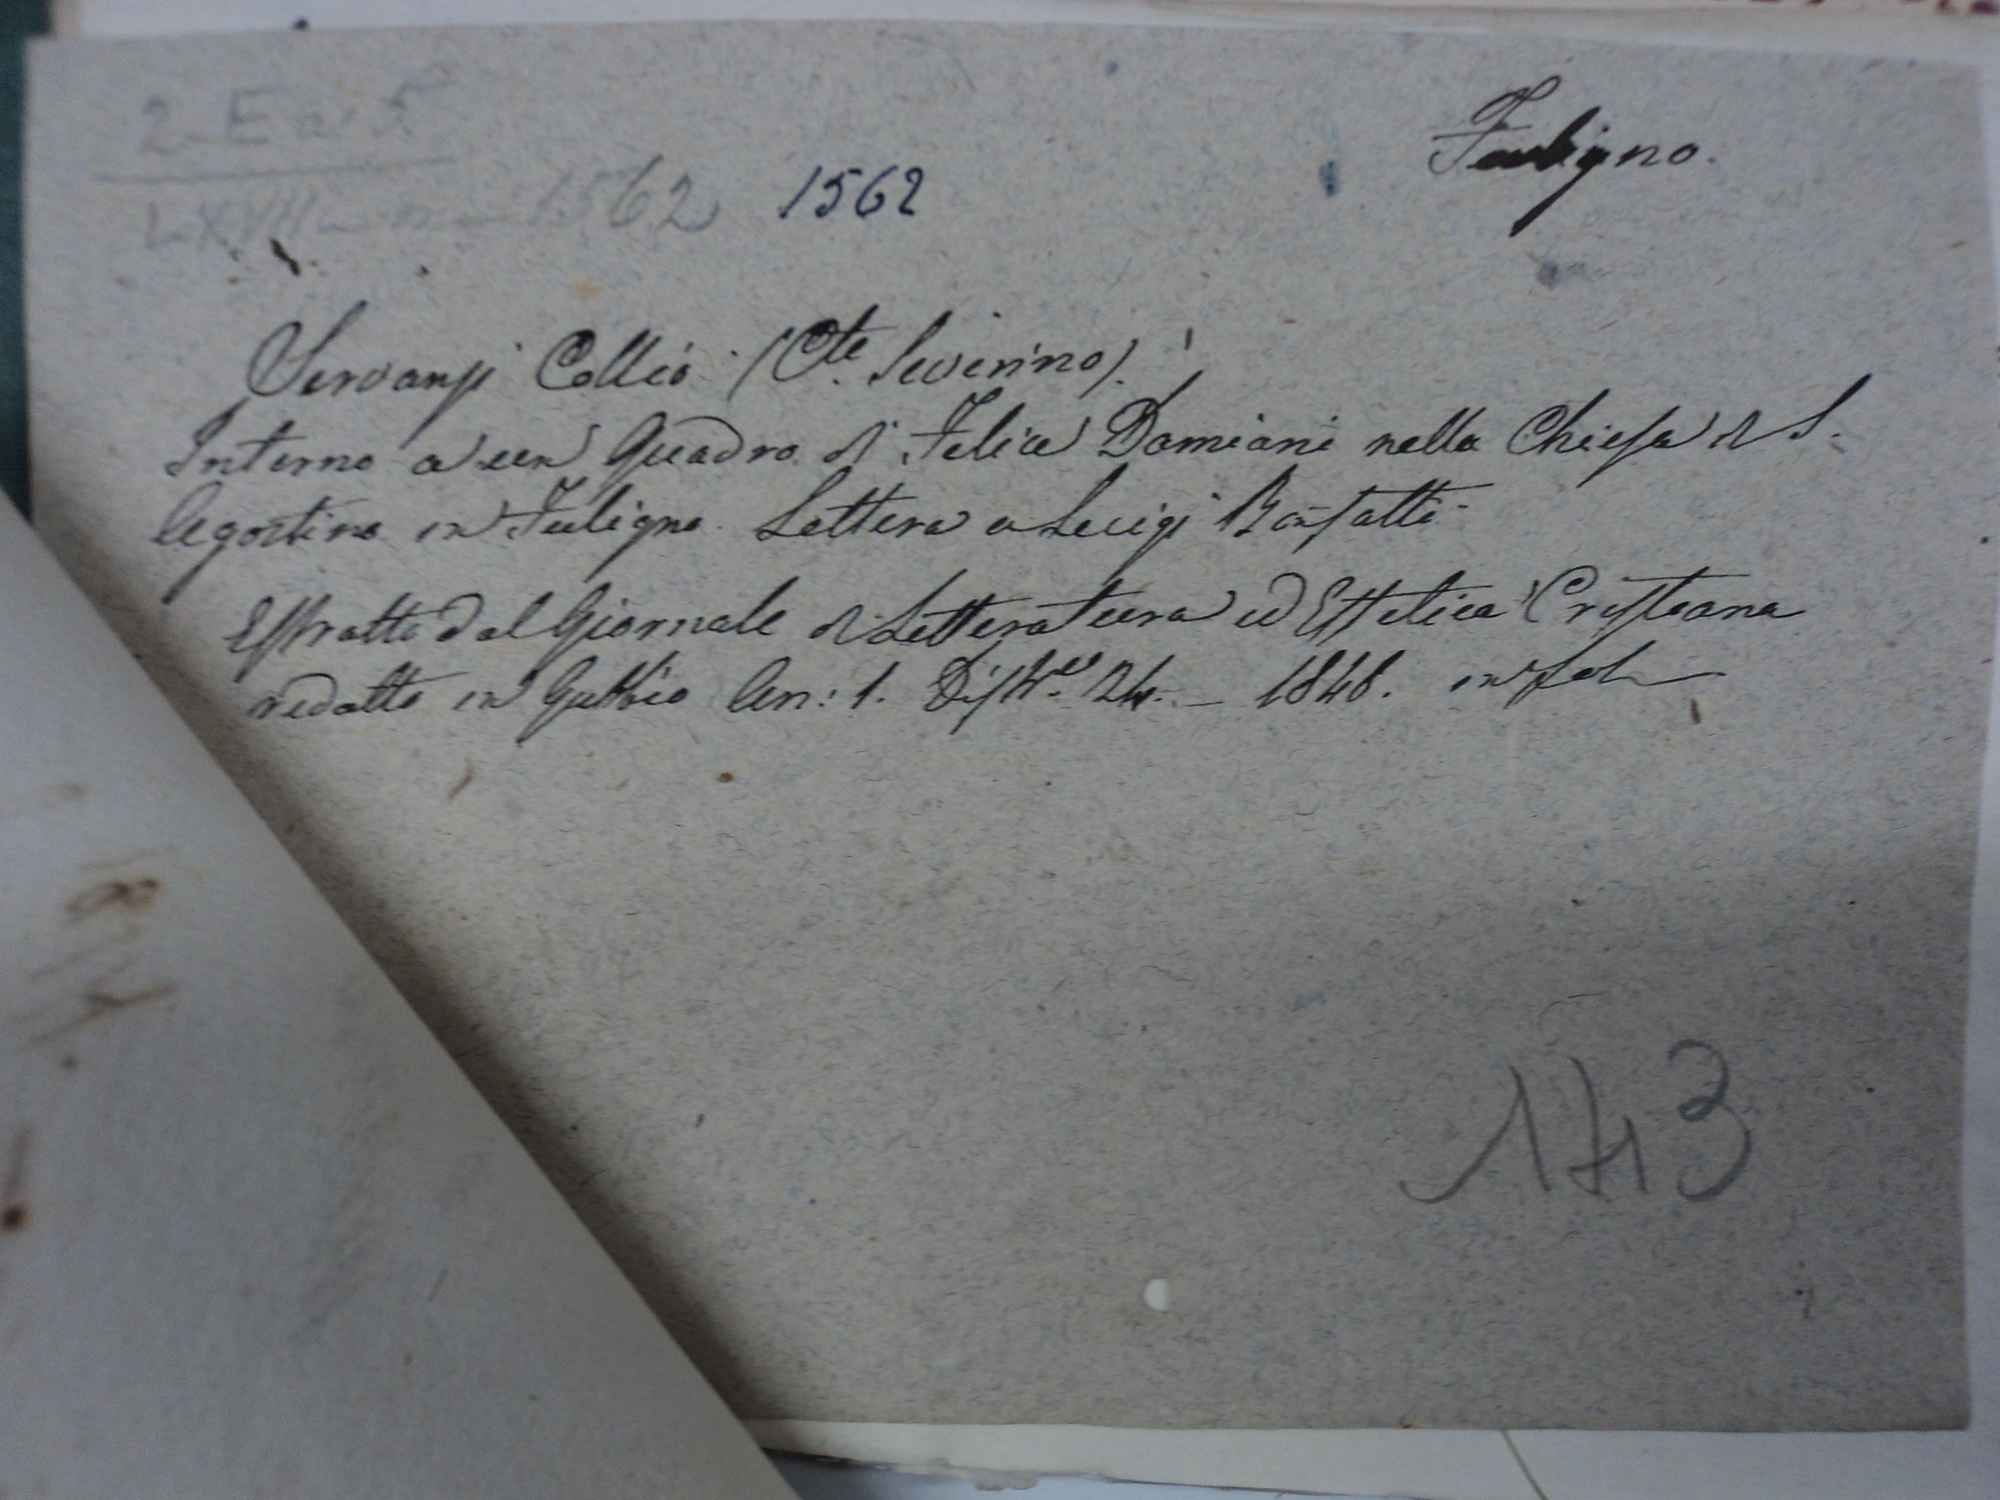 2 E a 5
Fuligno.
LXVII n 1562 1562
Servanzi Collio (Cte. Severino).
Intorno a un Quadro di Felice Damiani nella Chiesa di S.
Agostino in Fuligno. Lettera a Luigi Bonfatti.
Estratto dal Giornale di Letteratura ed Estetica Cristiana
redatto in Gubbio An: 1. 24. – 1848. in fol
143